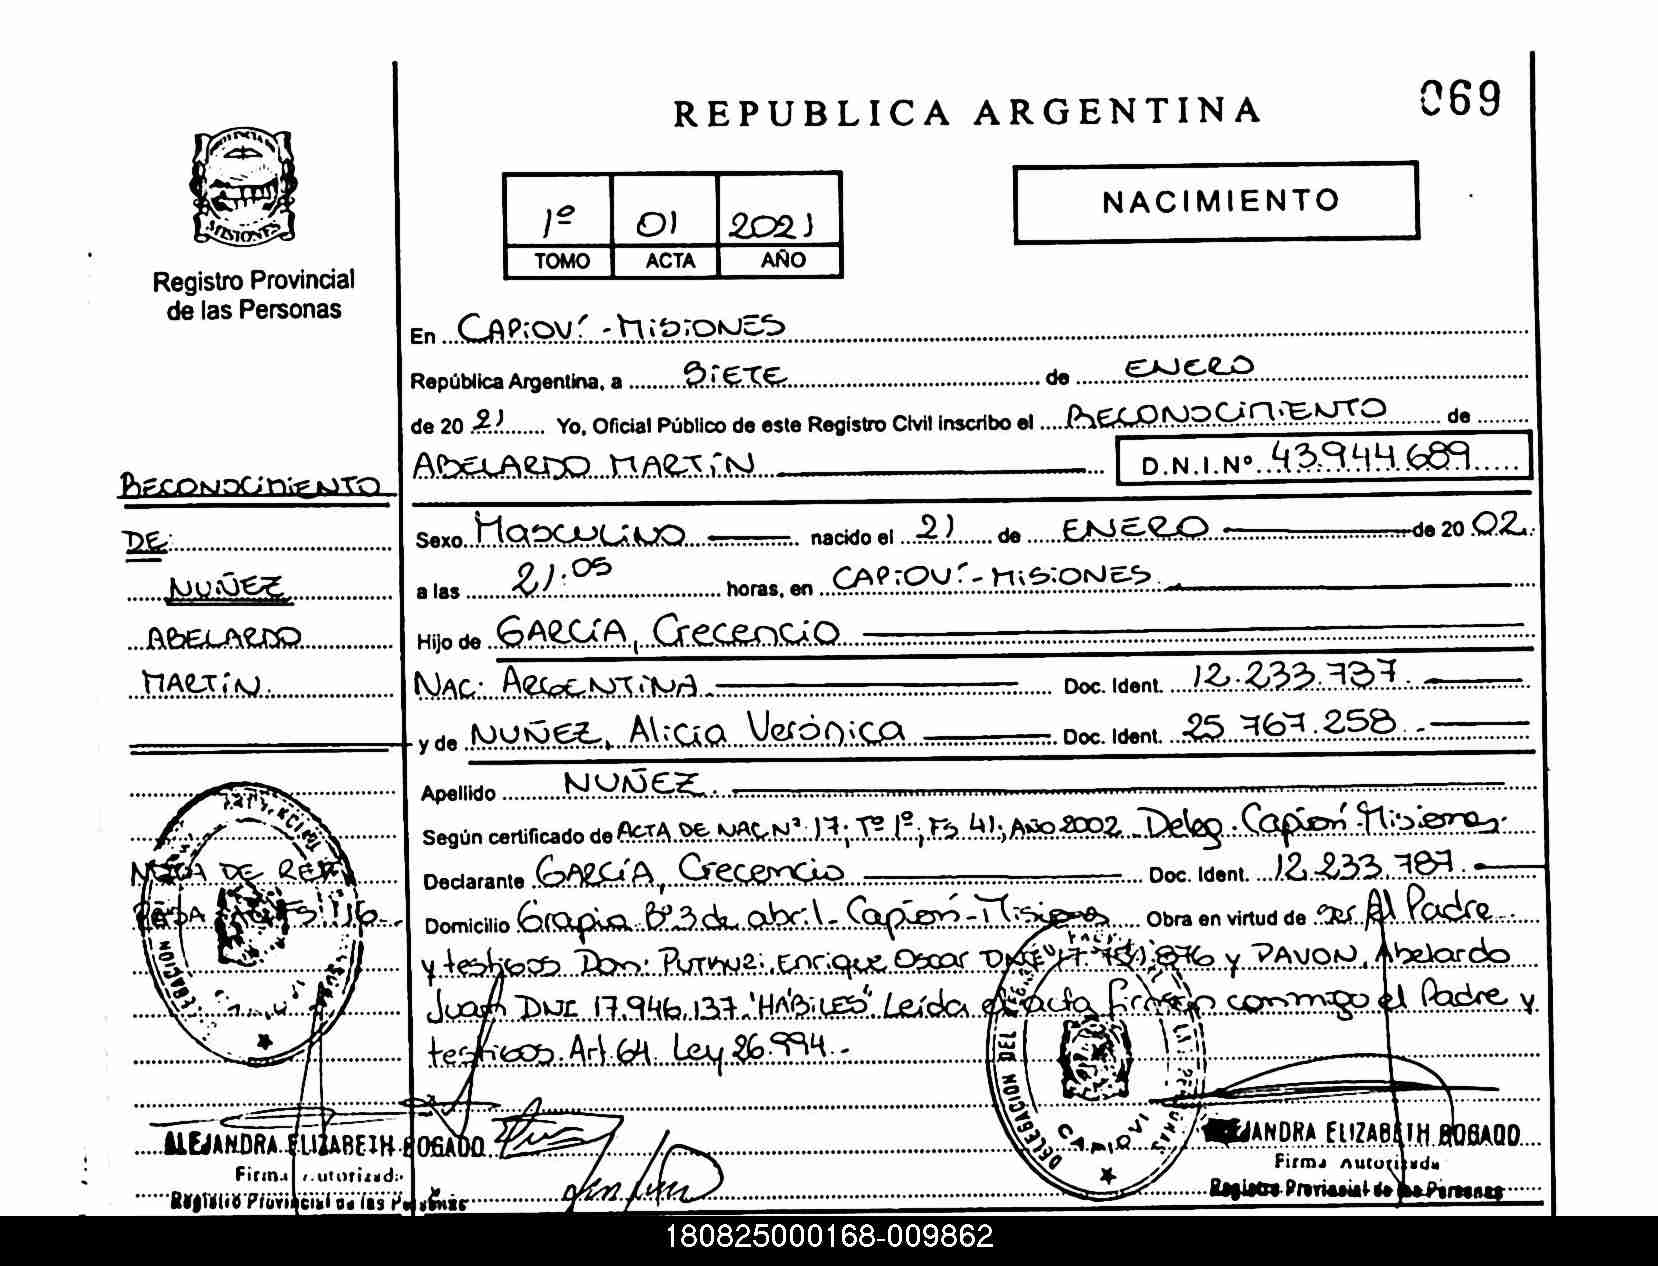 REPUBLICA ARGENTINA
069
MISIONES
Registro Provincial
de las Personas
1º 01 2021
TOMO ACTA AÑO
NACIMIENTO
En CAPIOVÍ - MISIONES
República Argentina, a SIETE de ENERO
de 20 21 Yo, Oficial Público de este Registro Civil inscribo el RECONOCIMIENTO de
ABELARDO MARTÍN D.N.I.Nº 43.944.689
RECONOCIMIENTO
DE:
NUÑEZ
ABELARDO
MARTÍN.
Sexo MASCULINO nacido el 21 de ENERO de 20 02.
a las 21:05 horas, en CAPIOVÍ - MISIONES.
Hijo de GARCÍA, Crecencio
NAC: ARGENTINA. Doc. Ident. 12.233.787.
y de NUÑEZ, Alicia Verónica Doc. Ident. 25.767.258.-
Apellido NUÑEZ.
Según certificado de ACTA DE NAC. Nº 17; Tº 1º; Fs 41; AÑO 2002 Deleg. Capioví Misiones.
Declarante GARCÍA, Crecencio Doc. Ident. 12.233.787.
Domicilio Grapia Bº 3 de abril - Capioví - Misiones Obra en virtud de ser El Padre
y testigos Don: Enrique Oscar DNI 17. 876 y PAVON, Abelardo
Juan DNI 17.946.137 "HÁBILES" Leída el acta firman conmigo el Padre y
testigos. Art. 64 Ley 26.994.-
NOTA DE REF
FS 116
DELEGACION DEL REGISTRO
CAPIOVI
ALEJANDRA ELIZABETH BOGADO
Firma Autorizada
Registro Provincial de las Personas
ALEJANDRA ELIZABETH BOGADO
Firma Autorizada
Registro Provincial de las Personas
180825000168-009862